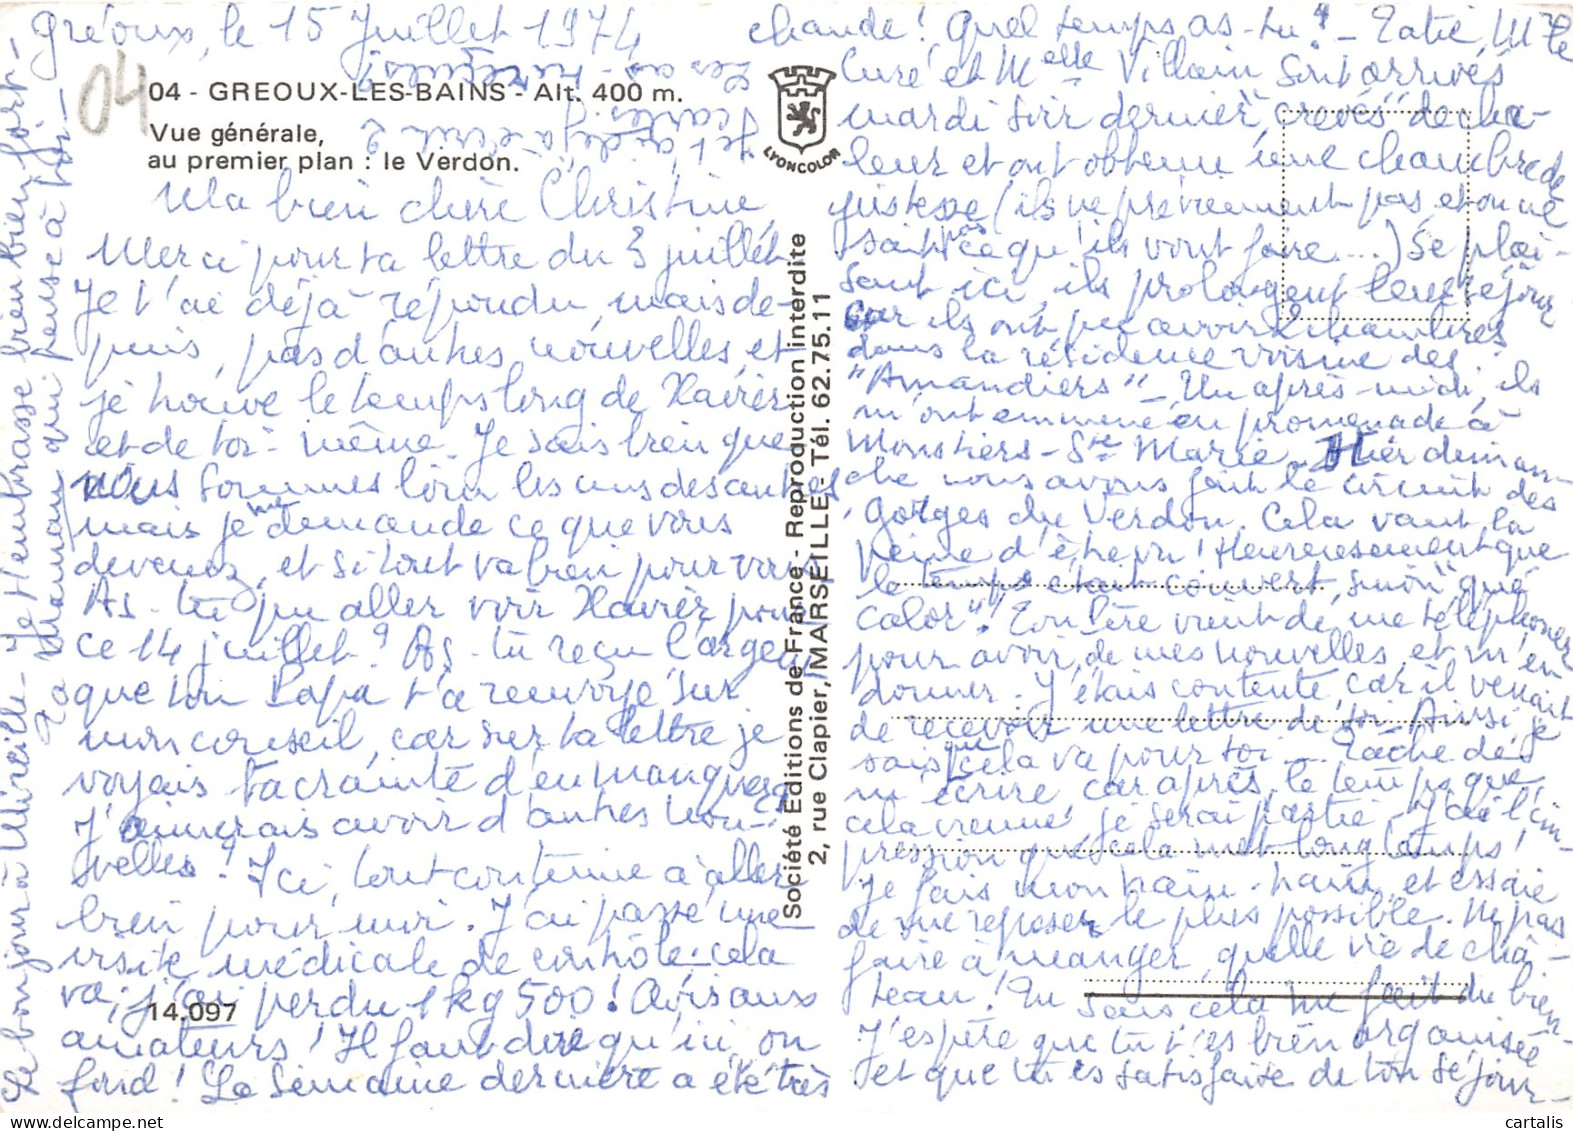 Gréoux, le 15 Juillet 1974
04
04 - GREOUX-LES-BAINS - Alt. 400 m.
Vue générale,
au premier plan : le Verdon.
LYONCOLOR
Ma bien chère Christine,
Merci pour ta lettre du 3 juillet
Je t'ai déjà répondu, mais de-
puis, pas d'autres nouvelles, et
je trouve le temps long de Xavier
et de toi-même. Je sais bien que
nous sommes loin les uns des autres
mais je me demande ce que vous
devenez, et si tout va bien pour vous
As-tu pu aller voir Xavier pour
ce 14 juillet ? As-tu reçu l'argent
que ton Papa t'a renvoyé sur
mon conseil, car sur ta lettre je
voyais ta crainte d'en manquer
J'aimerais avoir d'autres nou-
velles ! Ici, tout continue à aller
bien pour moi. J'ai passé une
visite médicale de contrôle : cela
va, j'ai perdu 1 kg 500 ! Avis aux
14.097
amateurs ! Il faut dire qu'ici, on
fond ! La semaine dernière a été très
chaude ! Quel temps as-tu ? - Tatie, Mr le
Curé et Melle Villain sont arrivés
mardi soir dernier, "crevés" de cha-
leur et ont obtenu une chambre de
justesse (ils ne préviennent pas et on ne
sait pas ce qu'ils vont faire....) Se plai-
sant ici, ils prolongent leur séjour
car ils ont pu avoir 2 chambres
dans la résidence voisine des
"Amandiers" - Un après-midi, ils
m'ont emmenée en promenade à
Moustiers-Ste Marie - Hier diman-
che nous avons fait le circuit des
Gorges du Verdon. Cela vaut la
peine d'être vu ! Heureusement que
le temps était couvert, sinon "qué
calor" ! Ton Père vient de me téléphoner
pour avoir de mes nouvelles, et m'en
donner. J'étais contente, car il venait
de recevoir une lettre de toi. Ainsi je
sais que cela va pour toi .... Tâche de
m'écrire, car après, le temps que
cela vienne, je serai partie - J'ai l'im-
pression que cela met longtemps !
Je fais mon train-train, et essaie
de me reposer le plus possible. Ne pas
faire à manger, quelle vie de châ-
teau ! Tu sais cela me fait du bien -
J'espère que tu t'es bien organisée
et que tu es satisfaite de ton séjour -
Société Editions de France - Reproduction interdite
2, rue Clapier, MARSEILLE - Tél. 62.75.11
Le bonjour à Mireille - Je t'embrasse bien bien fort -
Ta Maman qui pense à toi -
Les as-tu reçues ?
Je t'ai déjà écrit 2
cartes.